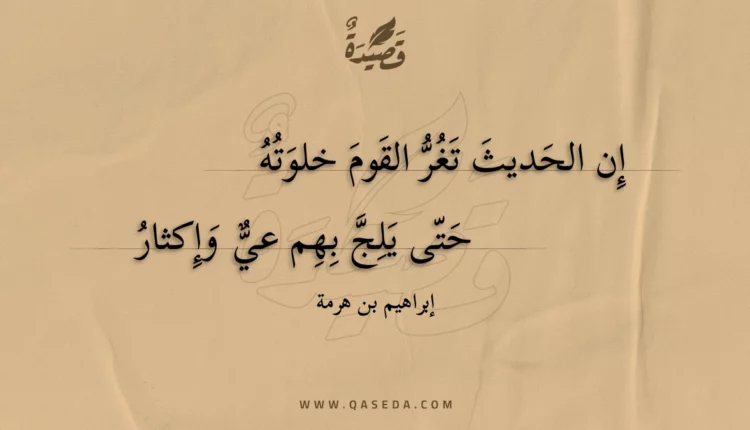 قَصِيْدَةٌ
إِن الحَديثَ تَغُرُّ القَومَ خلوَتُهُ
حَتّى يَلِجَّ بِهِم عيٌّ وَإِكثارُ
إبراهيم بن هرمة
WWW.QASEDA.COM